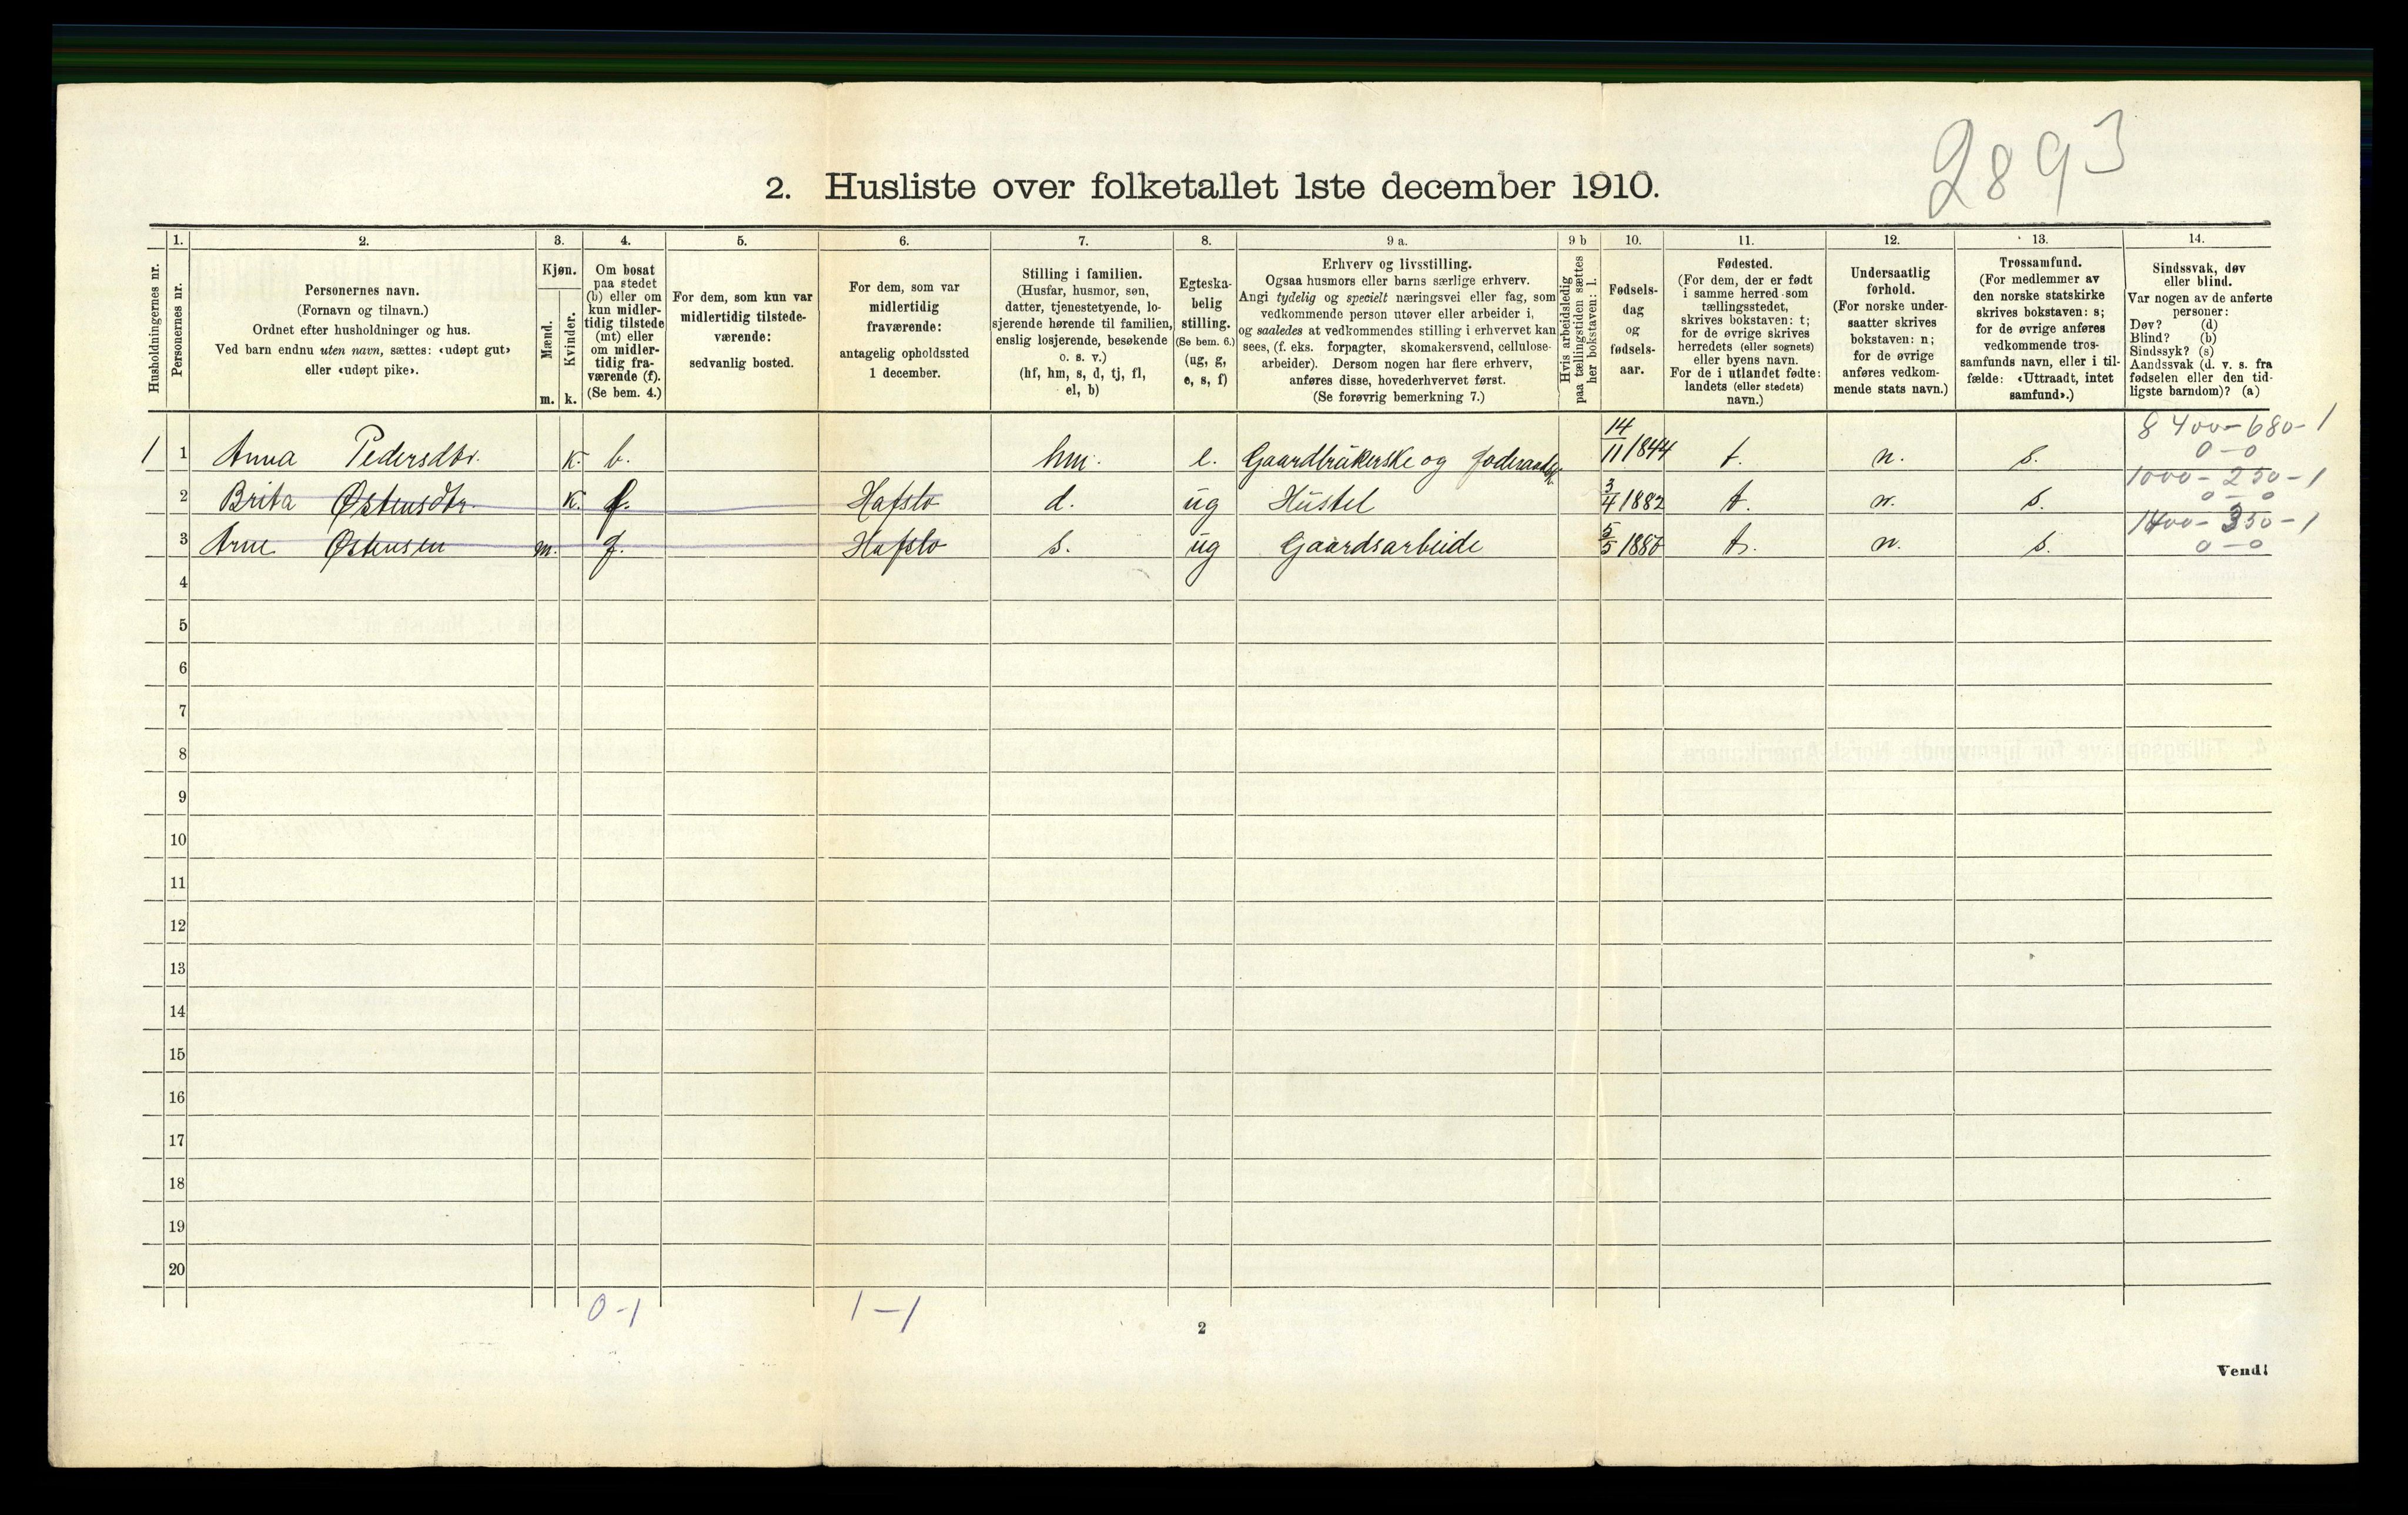 2893
2. Husliste over folketallet 1ste december 1910.
Husholdningernes nr.
1.
Personernes nr.
2.
Personernes navn.
(Fornavn og tilnavn.)
Ordnet efter husholdninger og hus.
Ved barn endnu uten navn, sættes: «udøpt gut»
eller «udøpt pike».
3.
Kjøn.
Mænd.
Kvinder.
m.
k.
4.
Om bosat
paa stedet
(b) eller om
kun midler-
tidig tilstede
(mt) eller
om midler-
tidig fra-
værende (f).
(Se bem. 4.)
5.
For dem, som kun var
midlertidig tilstede-
værende:
sedvanlig bosted.
6.
For dem, som var
midlertidig
fraværende:
antagelig opholdssted
1 december.
7.
Stilling i familien.
(Husfar, husmor, søn,
datter, tjenestetyende, lo-
sjerende hørende til familien,
enslig losjerende, besøkende
o. s. v.)
(hf, hm, s, d, tj, fl,
el, b)
8.
Egteska-
belig
stilling.
(Se bem. 6.)
(ug, g,
e, s, f)
9 a.
Erhverv og livsstilling.
Ogsaa husmors eller barns særlige erhverv.
Angi tydelig og specielt næringsvei eller fag, som
vedkommende person utøver eller arbeider i,
og saaledes at vedkommendes stilling i erhvervet kan
sees, (f. eks. forpagter, skomakersvend, cellulose-
arbeider). Dersom nogen har flere erhverv,
anføres disse, hovederhvervet først.
(Se forøvrig bemerkning 7.)
9 b
Hvis arbeidsledig
paa tællingstiden sættes
her bokstaven: l.
10.
Fødsels-
dag
og
fødsels-
aar.
11.
Fødested.
(For dem, der er født
i samme herred som
tællingsstedet,
skrives bokstaven: t;
for de øvrige skrives
herredets (eller sognets)
eller byens navn.
For de i utlandet fødte:
landets (eller stedets)
navn.)
12.
Undersaatlig
forhold.
(For norske under-
saatter skrives
bokstaven: n;
for de øvrige
anføres vedkom-
mende stats navn.)
13.
Trossamfund.
(For medlemmer av
den norske statskirke
skrives bokstaven: s;
for de øvrige anføres
vedkommende tros-
samfunds navn, eller i til-
fælde: «Uttraadt, intet
samfund».)
14.
Sindssvak, døv
eller blind.
Var nogen av de anførte
personer:
Døv? (d)
Blind? (b)
Sindssyk? (s)
Aandssvak (d. v. s. fra
fødselen eller den tid-
ligste barndom)? (a)
8400-680-1
1 1 Anna Pedersdtr. k. b. hm. e. Gaardbrukerske og 14/11 1844 t. n. s. 0-0
1000-250-1
2 Brita Østensdtr. k. f. Hafslo d. ug Hustel 3/4 1882 t. n. s. 0-0
3 Arne Østensen m. f. Hafslo s. ug Gaardsarbeide 5/5 t. n. s. 0-0
4
5
6
7
8
9
10
11
12
13
14
15
16
17
18
19
20
0-1 1-1
2
Vend!